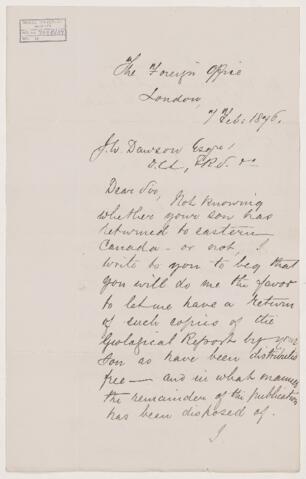 The Foreign Office
London,
7 Feb: 1876.
J. W. Dawson Esqre,
Dear Sir, Not knowing
whether your son has
returned to eastern
Canada - or not, I
write to you to beg that
you will do me the favor
to let me have a return
of such copies of the
Geological Report by your
Son as have been distributed
free — and in what manner
the remainder of the publication
has been disposed of.
I